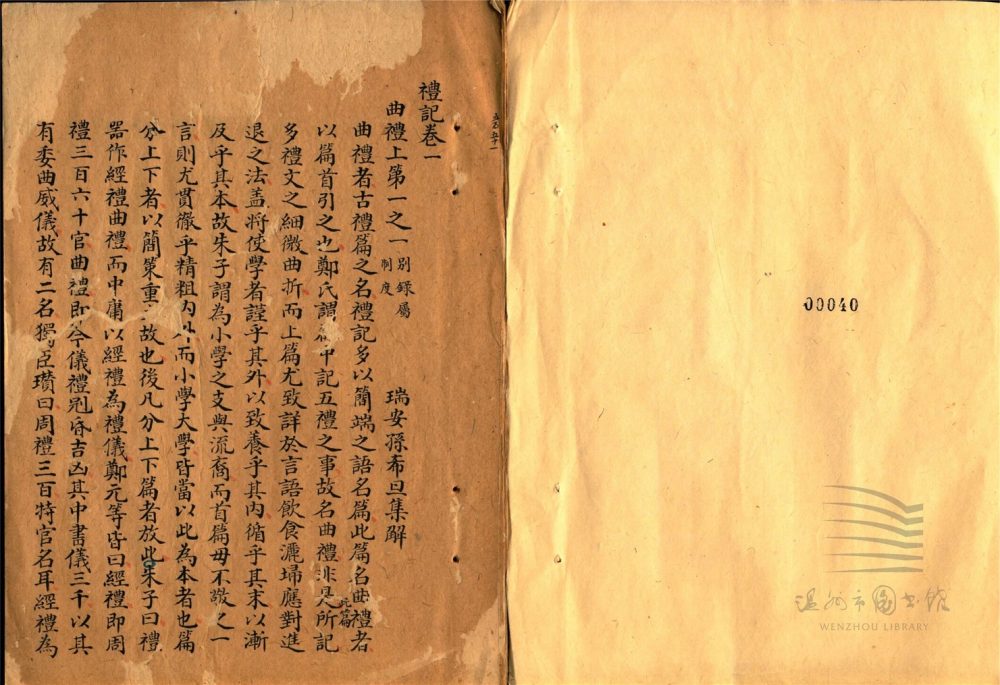 禮記卷一
曲禮上第一之一 别錄屬制度 瑞安孫希旦集解
曲禮者古禮篇之名禮記多以簡端之語名篇此篇名曲禮者
以篇首引之也鄭氏謂篇中記五禮之事故名曲禮非是此篇所記
多禮文之細微曲折而上篇尤致詳於言語飲食灑埽應對進
退之法盖将使學者謹乎其外以致養乎其内循乎其末以漸
及乎其本故朱子謂為小學之支與流裔而首篇毋不敬之一
言則尤貫徹乎精粗内外而小學大學皆當以此為本者也篇
分上下者以簡策重故也後凡分上下篇者放此朱子曰禮
器作經禮曲禮而中庸以經禮為禮儀鄭元等皆曰經禮即周
禮三百六十官曲禮即今儀禮冠昏吉凶其中書儀三千以其
有委曲威儀故有二名獨臣瓉曰周禮三百特官名耳經禮為
00040
温州市图书馆
WENZHOU LIBRARY